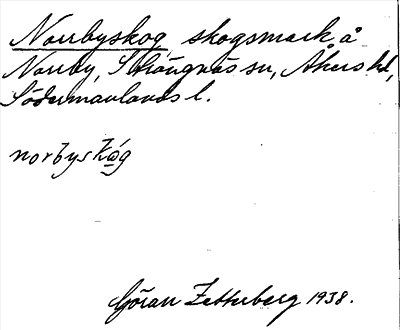 Norrbyskog skogsmark å
Norrby, Strängnäs sn, Åkers hd,
Södermanlands l.
norbyskóg
Göran Zetterberg 1938.